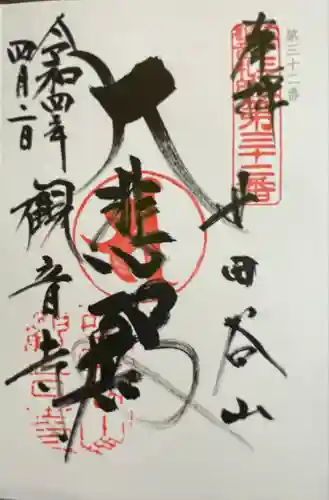 第三十二番
奉拝
第三十二番
世田谷山
大悲殿
觀音寺
令和四年
四月二日